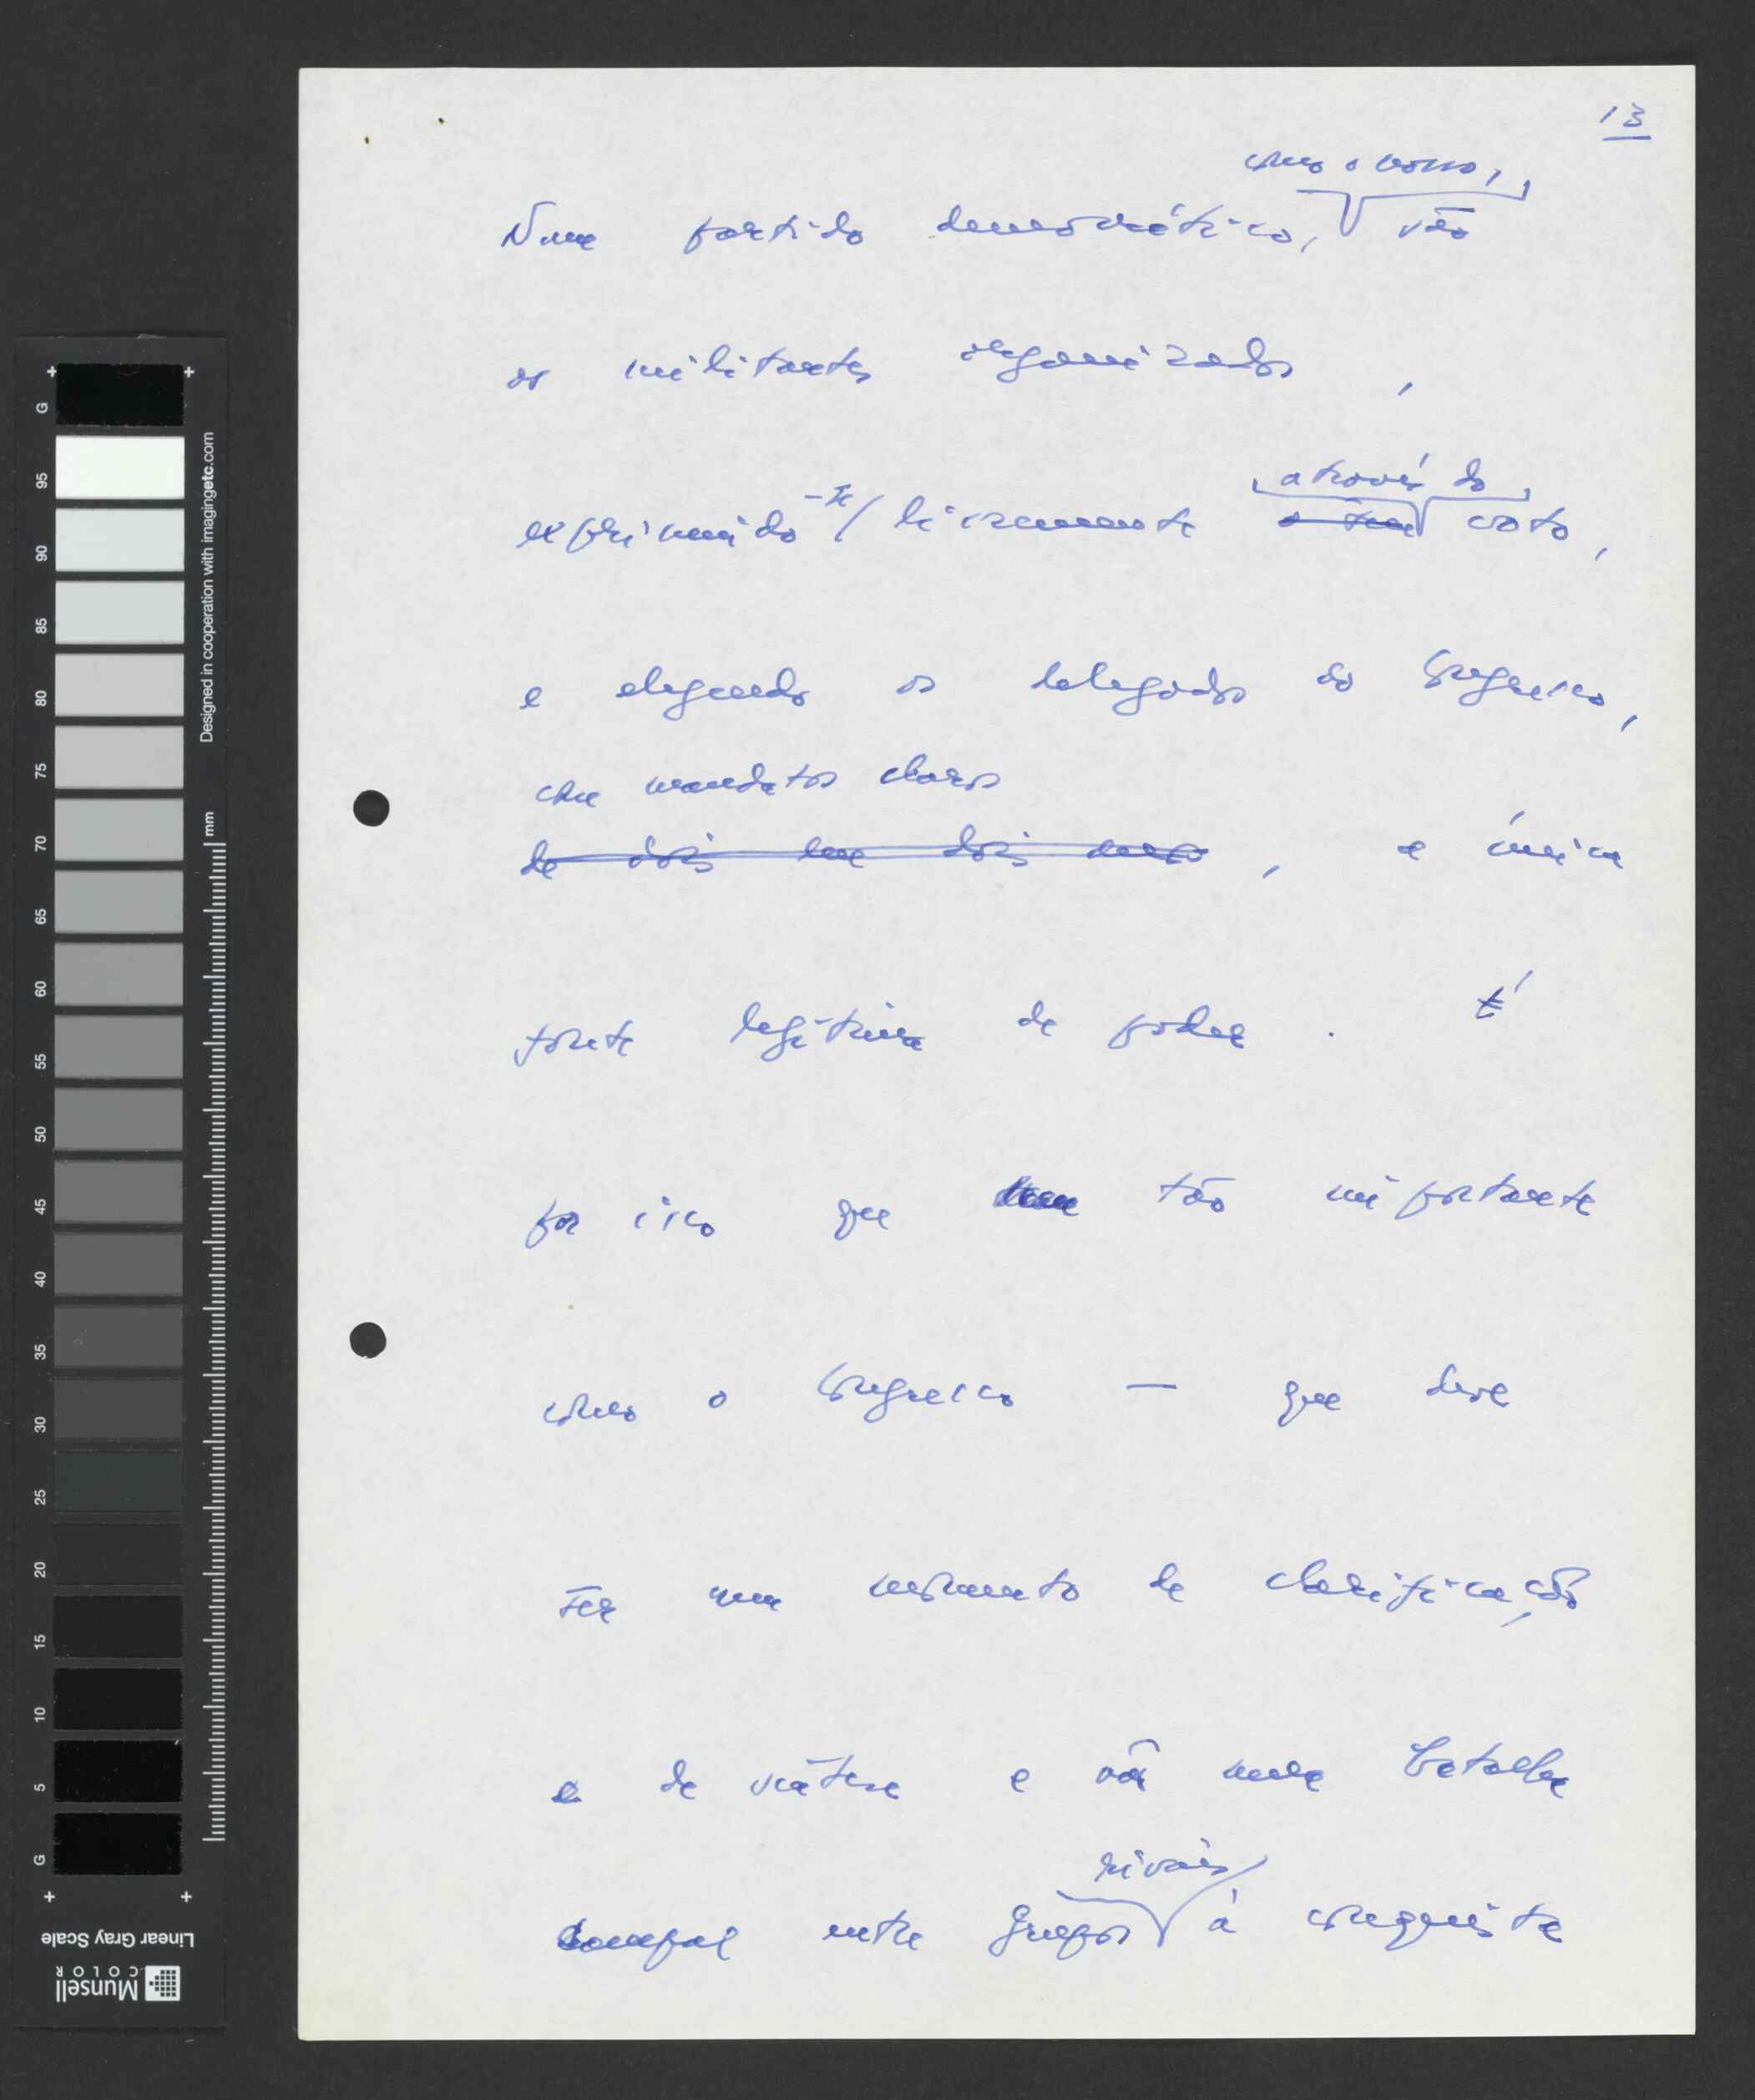 13
como o nosso,
Num partido democrático, são
os militantes organizados,
através do
exprimindo-se livremente o seu voto,
e elegendo os delegados ao Congresso,
com mandatos claros
de dois em dois anos, a única
fonte legítima de poder. É
por isso que tão importante
como o Congresso — que deve
ser um momento de clarificação
e de síntese e não uma batalha
campal entre grupos à conquista
rivais
G 95 90 85 80 75 70 65 60 55 50 45 40 35 30 25 20 15 10 5 G
Designed in cooperation with imagingetc.com
mm
Linear Gray Scale
Munsell
COLOR